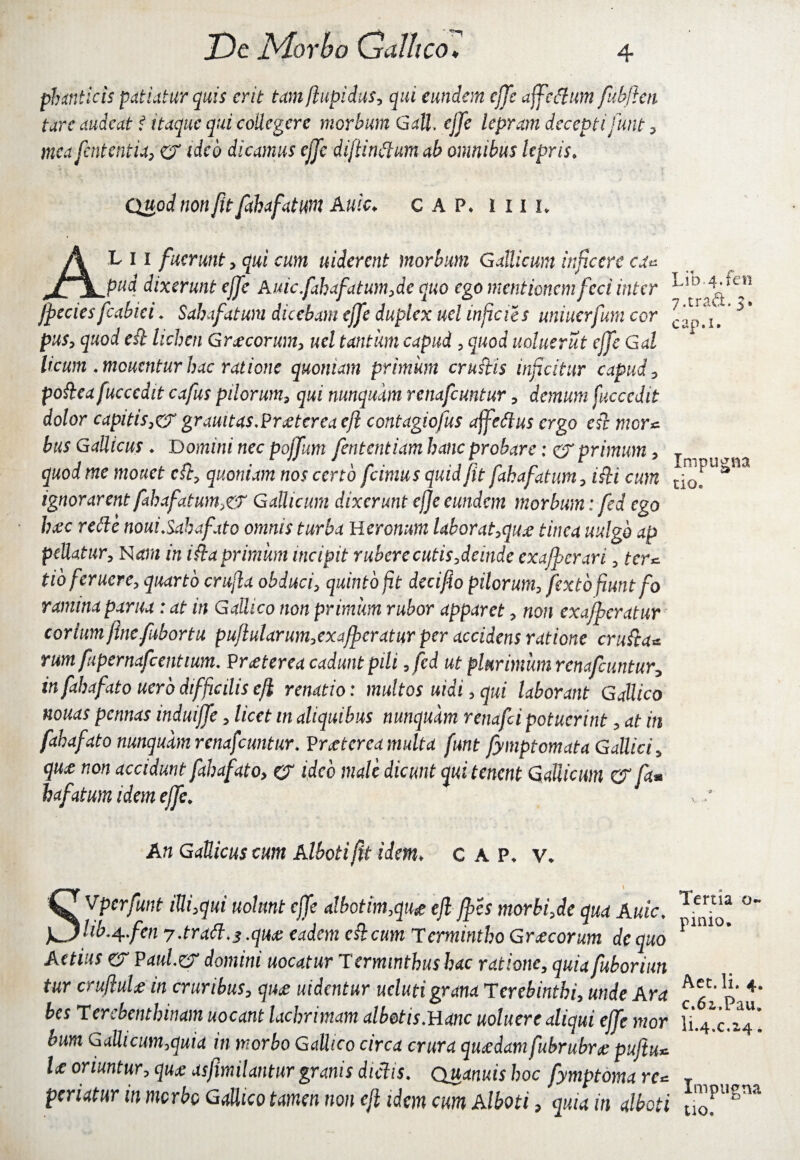 De Morbo Gallico. 4
phanticis patiatur quis erit tam stupidus, qui eundem esse affectum substen
tare audeat ? itaque qui collegere morbum Gall. esse lepram decepti sunt,
mea sententia, & ideo dicamus esse distinctum ab omnibus lepris.
Quod non sit sahafatum Auic. CAP. IIII.
ALII fuerunt, qui cum uiderent morbum Gallicum inficere ca=
pud dixerunt esse Auic.sahafatum,de quo ego mentionem feci inter
species scabiei. Sahafatum dicebam esse duplex uel inficiēs uniuersum cor
pus, quod est lichen Græcorum, uel tantùm capud, quod uoluerūt esse Gal
licum. mouentur hac ratione quoniam primùm crustis inficitur capud,
postea succedit casus pilorum, qui nunquàm renascuntur, demum succedit
dolor capitis,& grauitas.Præterea est contagiosus affectus ergo est mor=
bus Gallicus. Domini nec possum sententiam hanc probare: & primum,
quod me mouet est, quoniam nos certò scimus quid sit sahafatum, isti cum
ignorarent sahafatum,& Gallicum dixerunt esse eundem morbum: sed ego
hæc rectè noui.Sahafato omnis turba Heronum laborat,quæ tinea uulgò ap
pellatur, Nam in ista primùm incipit rubere cutis,deinde exasperari, ter=
tiò feruere, quartò crusta obduci, quintò fit decisio pilorum, sextò fiunt fo
ramina parua: at in Gallico non primùm rubor apparet, non exasperatur
corium sine subortu pustularum,exasperatur per accidens ratione crusta=
rum supernascentium. Præterea cadunt pili, sed ut plurimùm renascuntur,
in sahafato uerò difficilis est renatio: multos uidi, qui laborant Gallico
nouas pennas induisse, licet in aliquibus nunquàm renasci potuerint, at in
sahafato nunquàm renascuntur. Præterea multa sunt symptomata Gallici,
quæ non accidunt sahafato, & ideò malè dicunt qui tenent Gallicum & sa=
hafatum idem esse.
Lib.4.fen
7.tract.3.
cap.1.
Impugna
tio.
An Gallicus cum Alboti sit idem. CAP. V.
SVpersunt illi,qui uolunt esse albotim,quæ est spēs morbi,de qua Auic.
lib.4.fen 7.tract.3.quæ eadem est cum Termintho Græcorum de quo
Aetius & Paul.& domini uocatur Terminthus hac ratione, quia suboriun
tur crustulæ in cruribus, quæ uidentur ueluti grana Terebinthi, unde Ara
bes Terebenthinam uocant lachrimam albotis.Hanc uoluere aliqui esse mor
bum Gallicum,quia in morbo Gallico circa crura quædam subrubræ pustu=
læ oriuntur, quæ assimilantur granis dictis. Quanuis hoc symptoma re=
periatur in morbo Gallico tamen non est idem cum Alboti, quia in alboti
Tertia o-
pinio.
Aet.li.4.
c.62.Pau.
li.4.c.24.
Impugna
tio.